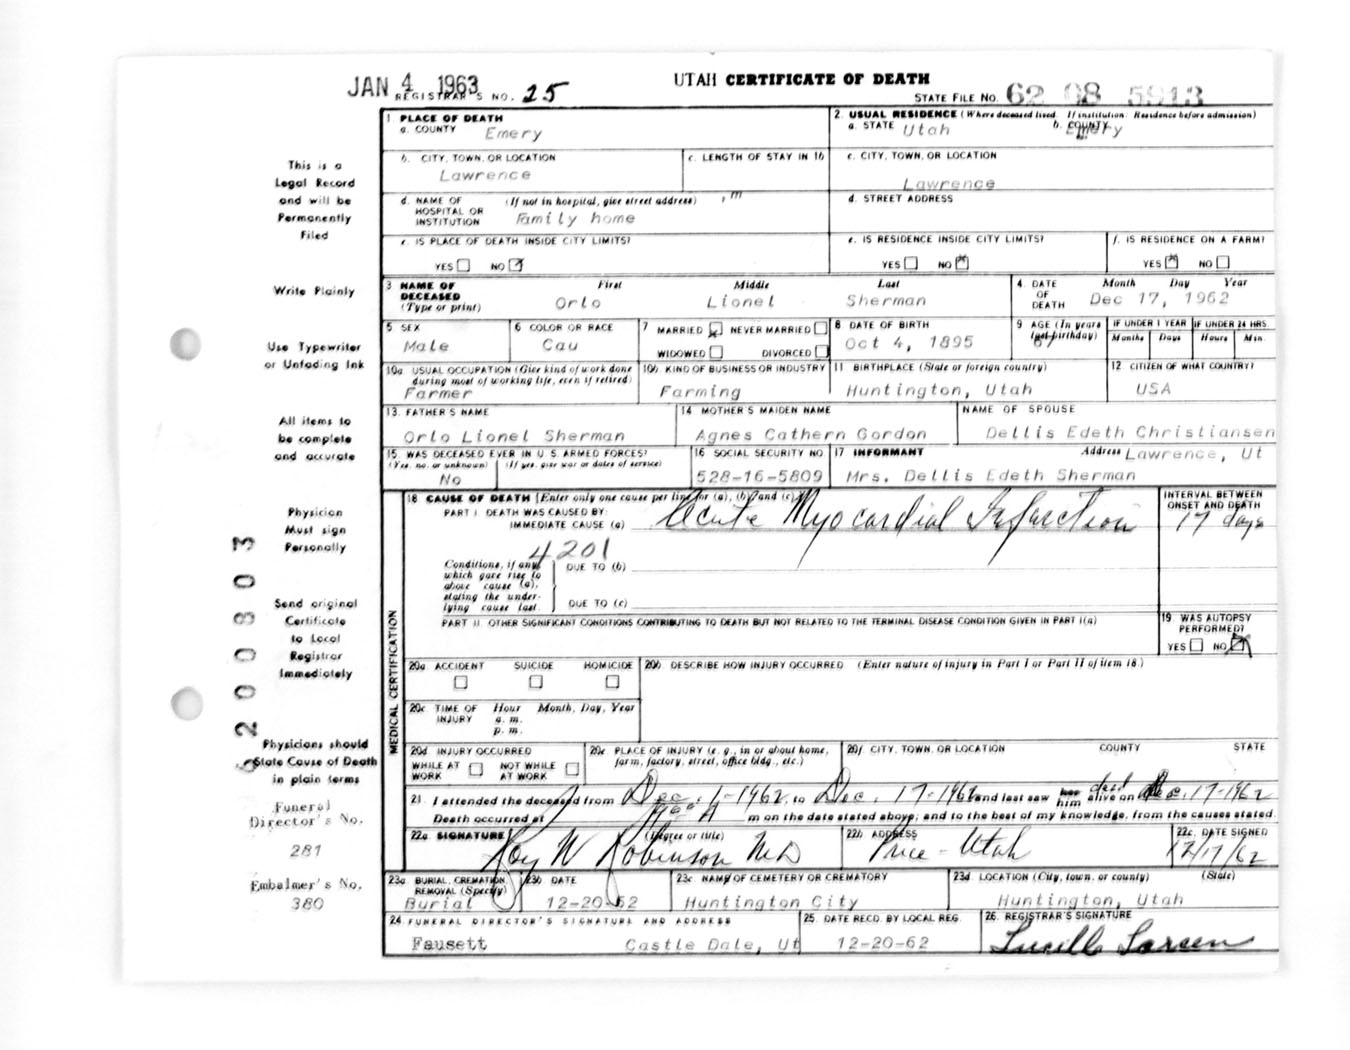 JAN 4 1963
UTAH CERTIFICATE OF DEATH
REGISTRAR'S NO. 25
STATE FILE NO. 62 08 5913
This is a
Legal Record
and will be
Permanently
Filed
Write Plainly
Use Typewriter
or Unfading Ink
All items to
be complete
and accurate
Physician
Must sign
Personally
Send original
Certificate
to Local
Registrar
Immediately
Physicians should
State Cause of Death
in plain terms
Funeral
Director's No.
281
Embalmer's No.
380
1 PLACE OF DEATH
a. COUNTY Emery
2. USUAL RESIDENCE (Where deceased lived. If institution: Residence before admission)
a. STATE Utah b. COUNTY Emery
b. CITY, TOWN, OR LOCATION
Lawrence
c. LENGTH OF STAY IN 1b
c. CITY, TOWN, OR LOCATION
Lawrence
d. NAME OF HOSPITAL OR INSTITUTION (If not in hospital, give street address)
Family home
d. STREET ADDRESS
e. IS PLACE OF DEATH INSIDE CITY LIMITS?
YES NO
e. IS RESIDENCE INSIDE CITY LIMITS?
YES NO
f. IS RESIDENCE ON A FARM?
YES NO
3 NAME OF DECEASED (Type or print) First Middle Last
Orlo Lionel Sherman
4. DATE OF DEATH Month Day Year
Dec 17, 1962
5 SEX
Male
6 COLOR OR RACE
Cau
7 MARRIED NEVER MARRIED
WIDOWED DIVORCED
8 DATE OF BIRTH
Oct 4, 1895
9 AGE (In years last birthday)
67
IF UNDER 1 YEAR
Months Days
IF UNDER 24 HRS.
Hours Min.
10a USUAL OCCUPATION (Give kind of work done during most of working life, even if retired)
Farmer
10b. KIND OF BUSINESS OR INDUSTRY
Farming
11 BIRTHPLACE (State or foreign country)
Huntington, Utah
12 CITIZEN OF WHAT COUNTRY?
USA
13. FATHER'S NAME
Orlo Lionel Sherman
14 MOTHER'S MAIDEN NAME
Agnes Cathern Gordon
NAME OF SPOUSE
Dellis Edeth Christiansen
15 WAS DECEASED EVER IN U.S. ARMED FORCES?
(Yes, no, or unknown) (If yes, give war or dates of service)
No
16 SOCIAL SECURITY NO
528-16-5809
17 INFORMANT Address Lawrence, Ut
Mrs. Dellis Edeth Sherman
MEDICAL CERTIFICATION
18 CAUSE OF DEATH [Enter only one cause per line for (a), (b), and (c).]
PART I. DEATH WAS CAUSED BY:
IMMEDIATE CAUSE (a) Acute Myocardial Infarction
INTERVAL BETWEEN ONSET AND DEATH
17 days
4201
Conditions, if any, which gave rise to above cause (a), stating the underlying cause last.
DUE TO (b)
DUE TO (c)
PART II. OTHER SIGNIFICANT CONDITIONS CONTRIBUTING TO DEATH BUT NOT RELATED TO THE TERMINAL DISEASE CONDITION GIVEN IN PART I(a)
19 WAS AUTOPSY PERFORMED?
YES NO
20a. ACCIDENT SUICIDE HOMICIDE
20b. DESCRIBE HOW INJURY OCCURRED (Enter nature of injury in Part I or Part II of item 18.)
20c TIME OF INJURY Hour Month, Day, Year
a. m.
p. m.
20d INJURY OCCURRED
WHILE AT WORK NOT WHILE AT WORK
20e. PLACE OF INJURY (e. g., in or about home, farm, factory, street, office bldg., etc.)
20f. CITY, TOWN, OR LOCATION COUNTY STATE
21. I attended the deceased from Dec. 1-1962, to Dec. 17-1962 and last saw her him dead alive on Dec. 17-1962
Death occurred at m on the date stated above; and to the best of my knowledge, from the causes stated.
22a. SIGNATURE (Degree or title)
Roy W Robinson MD
22b. ADDRESS
Price - Utah
22c. DATE SIGNED
12/17/62
23a BURIAL, CREMATION, REMOVAL (Specify)
Burial
23b DATE
12-20-62
23c NAME OF CEMETERY OR CREMATORY
Huntington City
23d. LOCATION (City, town, or county) (State)
Huntington, Utah
24. FUNERAL DIRECTOR'S SIGNATURE AND ADDRESS
Fausett Castle Dale, Ut
25. DATE RECD. BY LOCAL REG.
12-20-62
26. REGISTRAR'S SIGNATURE
Lucille Larsen